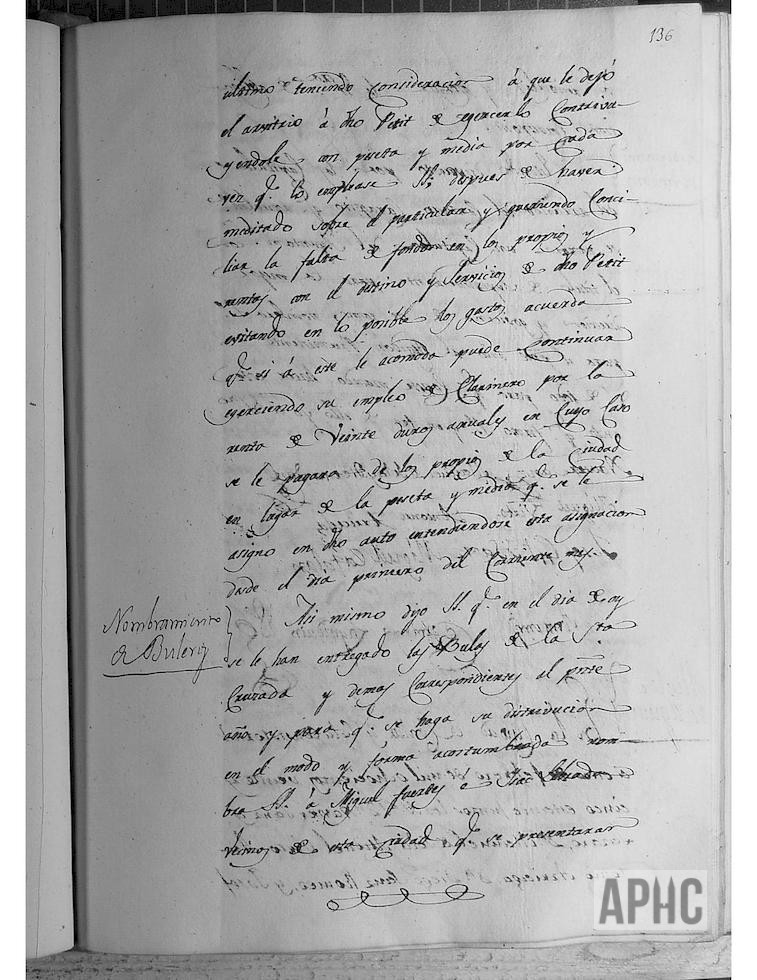 136
ultimo teniendo Consideracion á que le dejó
el arvitrio á dho Petit de egercerlo Contribu-
yendole con peseta y media por Cada
vez q.e lo emplease SS; despues de haver
meditado sobre el particular, y queriendo Conci-
liar la falta de fondos en los propios y
rentas con el destino y Servicios de dho Petit
evitando en lo posible los gastos acuerda
q.e si á este le acomoda puede Continuar
egerciendo su empleo de Clarinero por la
renta de Veinte duros anuales en Cuyo Caso
se le pagara de los propios de la Ciudad
en lugar de la peseta y media q.e se le
asigno en dho auto entendiendose esta asignacion
desde el dia primero del Corriente mes.
Nombramiento
de Buleros
Asi mismo dijo SS. q.e en el dia de oy
se le han entregado las Bulas de la Sta
Cruzada y demas Correspondientes al pnte
año, y para q.e se haga su distribucion
en el modo y forma acostumbrada nom-
bra SS. á Miguel fuertes e
Vecinos de esta Ciudad q.e se presentaran
APHC